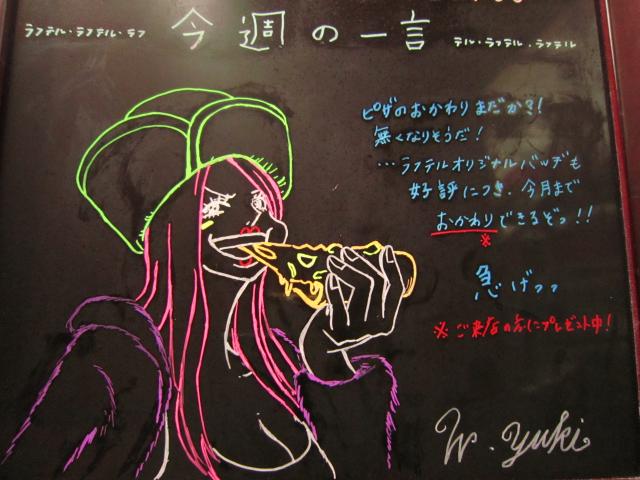 ラフテル・ラフテル・ラフ 今週の一言 テル・ラフテル・ラフテル
ピザのおかわりまだか?!
無くなりそうだ!
…ラフテルオリジナルバッヂも
好評につき、今月まで
おかわりできるぞっ!!
※
急げッッ
※ご来店の方にプレゼント中!
W.yuki